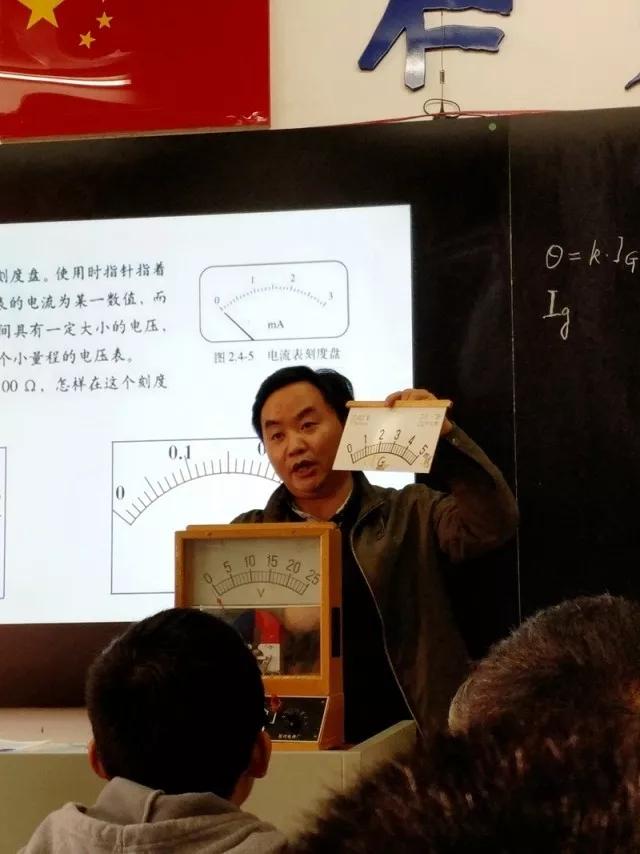 刻度盘。使用时指针指着
表的电流为某一数值,而
间具有一定大小的电压,
个小量程的电压表。
00 Ω,怎样在这个刻度
0 1 2 3
mA
图 2.4-5 电流表刻度盘
θ = k·I_G
I_g
0 0.1 0
0 1 2 3 4 5
G
0 5 10 15 20 25
V